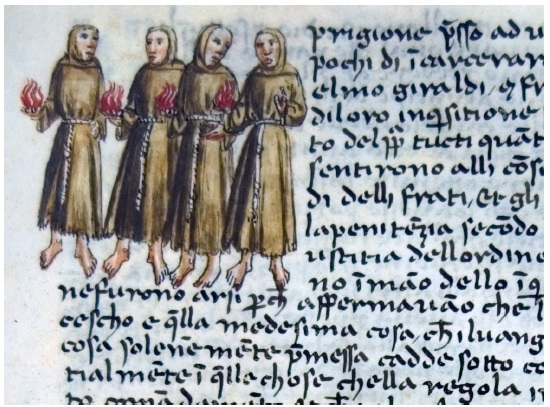 prigione p̄sso ad u
pochi di ī carcerar
elmo giraldi, et fr
di loro inq̄sitione
to del p̄p̄ tucti quāt
sentirono alli cōs
di delli frati, Et gl
la penitēzia secōdo
ustitia dell ordine
no ī mão dello ī q
ne furono arsi p ch̄ affermauão che l
cescho e q̄lla medesima cosa, ch̄ il uang
cosa solenemēte p̄messa cadde sotto co
tialmēte ī q̄lle chose che lla regola